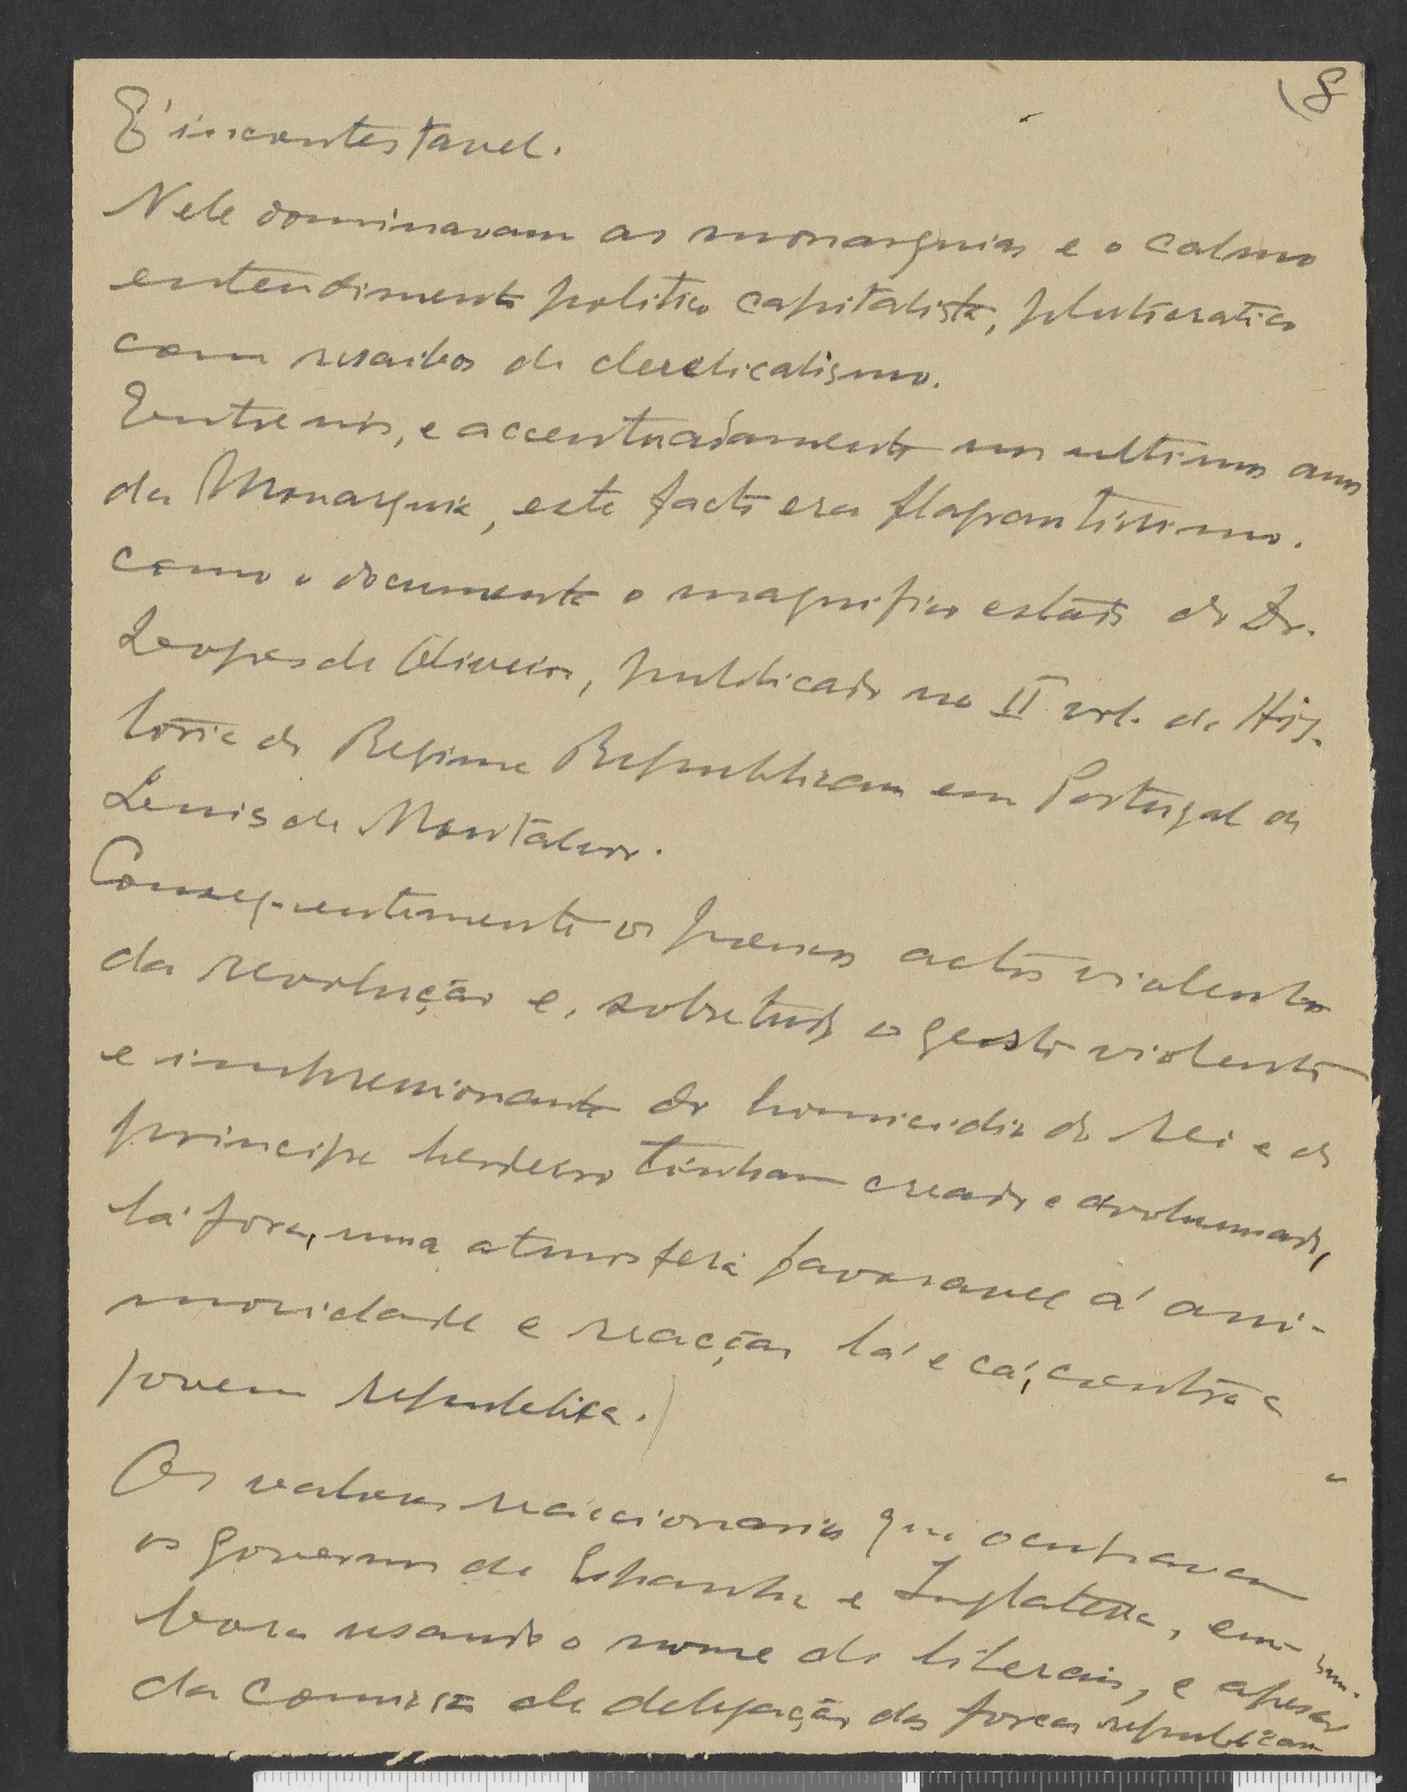 8
É incontestavel.
Nele dominavam as monarquias e o calmo
entendimento politico capitalista, plutocratico
com resaibos de clericalismo.
Entre nós, e accentuadamente nos ultimos anos
da Monarquia, este facto era flagrantissimo.
como o documenta o magnifico estudo do Dr.
Lopes de Oliveira, publicado no II vol. da His-
toria do Regime Republicano em Portugal de
Luis de Montalvor.
Consequentemente os  actos violentos
da revolução e, sobretudo o gesto violento
e impressionante do homicidio do Rei e do
principe herdeiro tinham creado e avolumado,
lá fora, uma atmosfera favoravel á ani-
mosidade e reacção lá e cá, contra a
jovem republica.)
Os valores reaccionarios que ocupavam
os governos de Espanha e Inglaterra, em-
bora usando o nome de liberais, e apesar
da  de delegação das forças republicanas